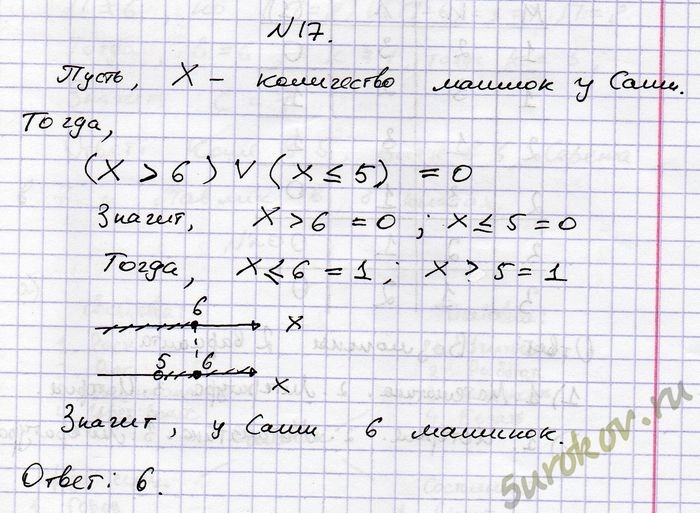 N17.
Пусть, X – количество машинок у Саши.
Тогда,
(X > 6) V (X ≤ 5) = 0
Значит, X > 6 = 0 ; X ≤ 5 = 0
Тогда, X ≤ 6 = 1 ; X > 5 = 1
6
X
5 6
X
Значит, у Саши 6 машинок.
Ответ: 6.
5urokov.ru